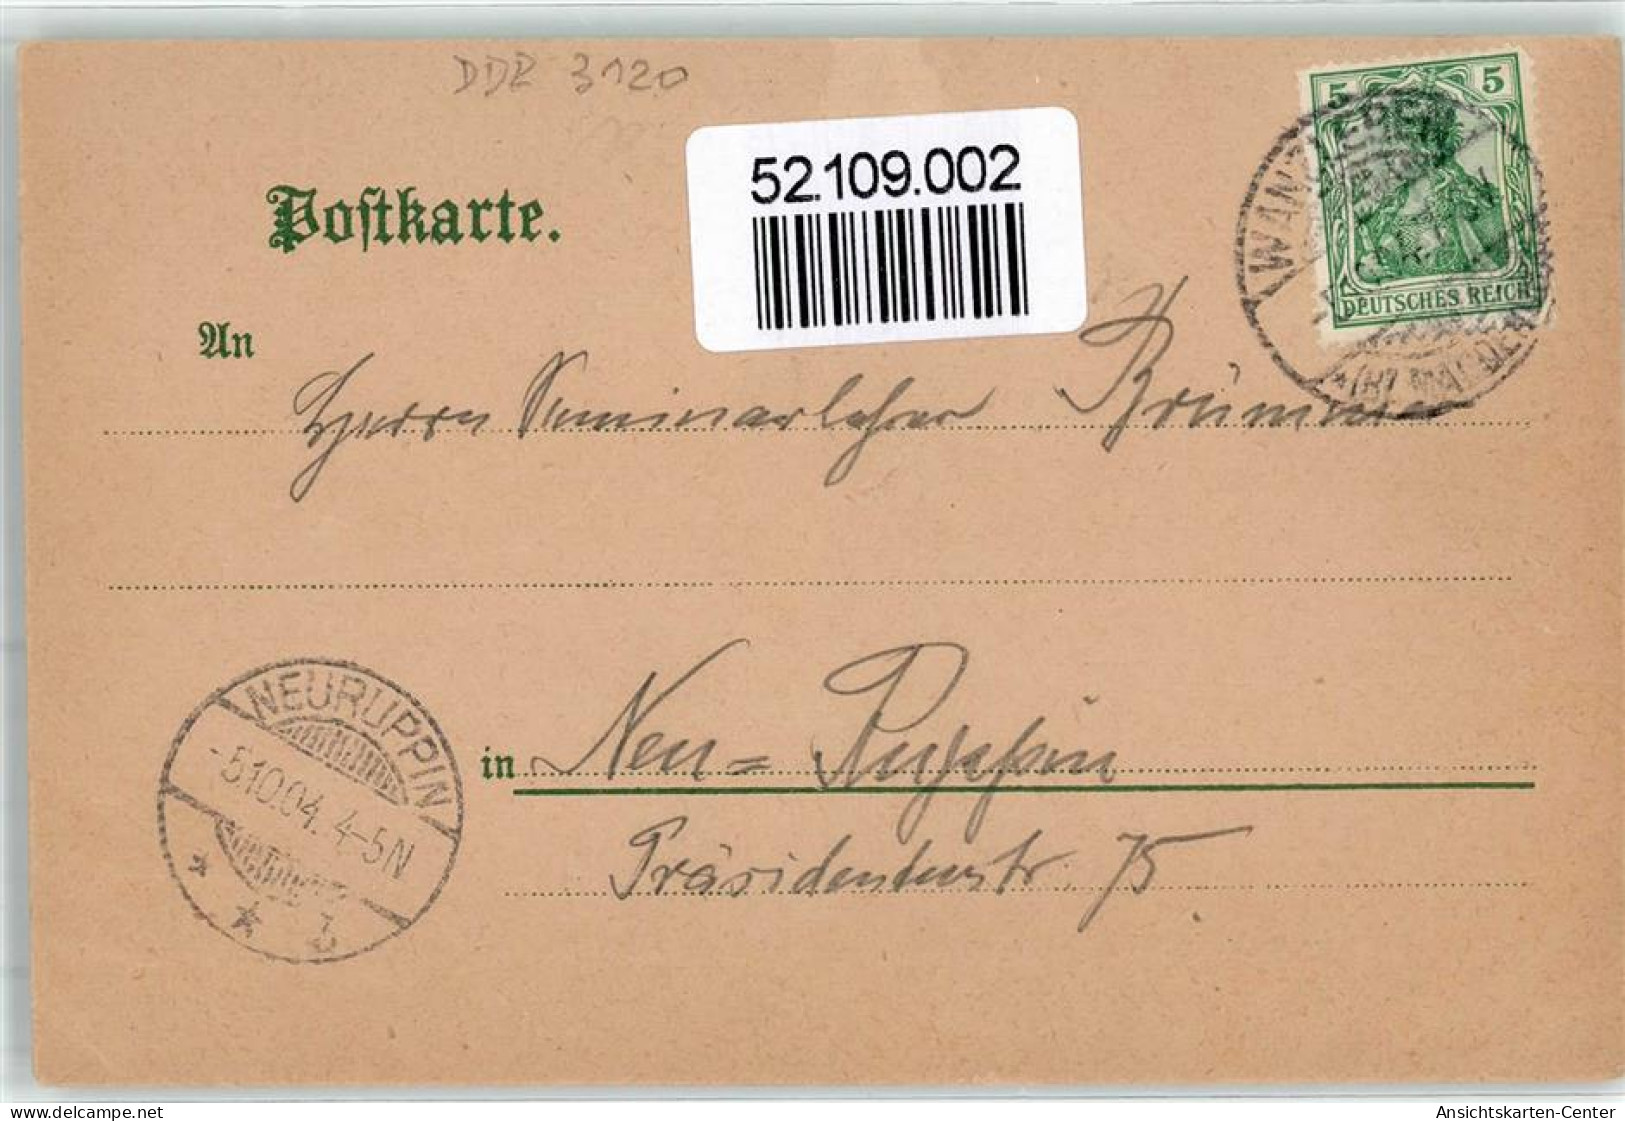 DDR 3120
52.109.002
5 5
DEUTSCHES REICH
WANZLEBEN
Postkarte.
An
Herrn Seminarlehrer Brümmer
NEURUPPIN
-5.10.04. 4-5N
* * b
in Neu=Ruppin
Präsidentenstr. 75
delcampe.net
Ansichtskarten-Center